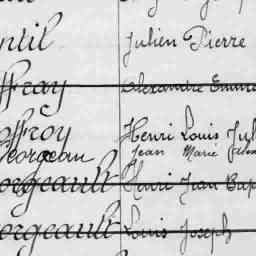 ntil Julien Pierre
ffray Alexandre Emma
offroy Henri Louis Jul
eorgeau Jean Marie
orgeault Henri Jean Bap
orgeault Louis Joseph